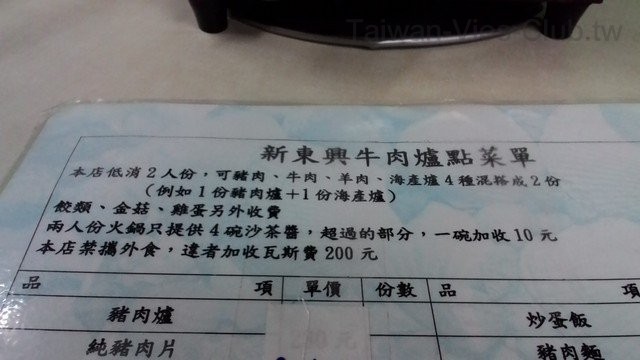 Taiwan-Vice-Club.tw
新東興牛肉爐點菜單
本店低消2人份,可豬肉、牛肉、羊肉、海產爐4種混搭成2份
(例如1份豬肉爐+1份海產爐)
餃類、金菇、雞蛋另外收費
兩人份火鍋只提供4碗沙茶醬,超過的部分,一碗加收10元
本店禁攜外食,違者加收瓦斯費200元
品 項 單價 份數 品
豬肉爐 炒蛋飯
純豬肉片 豬肉麵